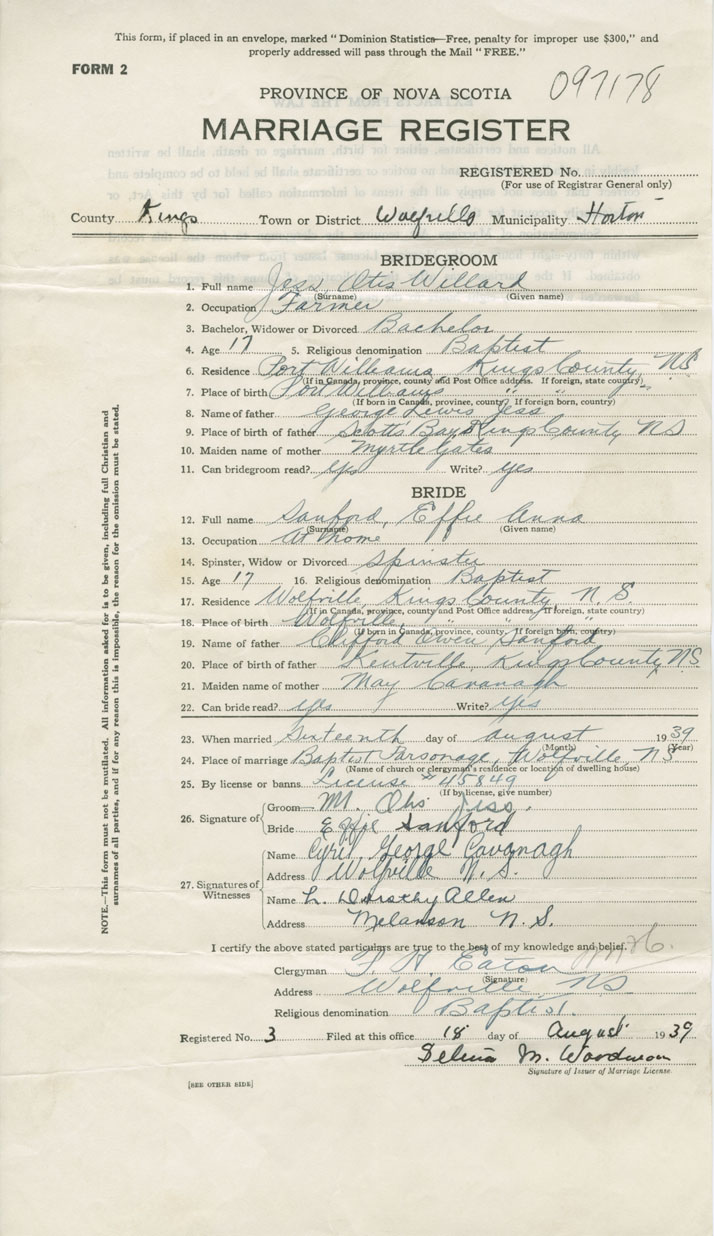 This form, if placed in an envelope, marked "Dominion Statistics—Free, penalty for improper use $300," and
properly addressed will pass through the Mail "FREE."
FORM 2
097178
PROVINCE OF NOVA SCOTIA
MARRIAGE REGISTER
REGISTERED No.
(For use of Registrar General only)
County Kings Town or District Wolfville Municipality Horton
BRIDEGROOM
1. Full name Jess, Otis Willard
(Surname) (Given name)
2. Occupation Farmer
3. Bachelor, Widower or Divorced Bachelor
4. Age 17 5. Religious denomination Baptist
6. Residence Port Williams Kings County, NS
(If in Canada, province, county and Post Office address. If foreign, state country)
7. Place of birth Port Williams " " "
(If born in Canada, province, county. If foreign born, country)
8. Name of father George Lewis Jess
9. Place of birth of father Scotts Bay Kings County NS
10. Maiden name of mother Myrtle Gates
11. Can bridegroom read? Yes Write? Yes
BRIDE
12. Full name Sanford, Effie Anna
(Surname) (Given name)
13. Occupation At home
14. Spinster, Widow or Divorced Spinster
15. Age 17 16. Religious denomination Baptist
17. Residence Wolfville, Kings County, N. S.
(If in Canada, province, county and Post Office address. If foreign, state country)
18. Place of birth Wolfville, " " "
(If born in Canada, province, county. If foreign born, country)
19. Name of father Clifford Owen Sanford
20. Place of birth of father Kentville Kings County, NS
21. Maiden name of mother May Cavanagh
22. Can bride read? yes Write? yes
23. When married Sixteenth day of August 1939
(Month) (Year)
24. Place of marriage Baptist Parsonage, Wolfville, NS
(Name of church or clergyman's residence or location of dwelling house)
25. By license or banns License # 45849
(If by license, give number)
26. Signature of
Groom M. Otis Jess.
Bride Effie Sanford
27. Signatures of Witnesses
Name Cyril George Cavanagh
Address Wolfville N. S.
Name L. Dorothy Allen
Address Melanson N. S.
I certify the above stated particulars are true to the best of my knowledge and belief.
Clergyman F. H. Eaton
(Signature)
Address Wolfville, NS
Religious denomination Baptist.
Registered No. 3 Filed at this office 18 day of August 1939
Selina M. Woodman
Signature of Issuer of Marriage License
[SEE OTHER SIDE]
NOTE.—This form must not be mutilated. All information asked for is to be given, including full Christian and
surnames of all parties, and if for any reason this is impossible, the reason for the omission must be stated.